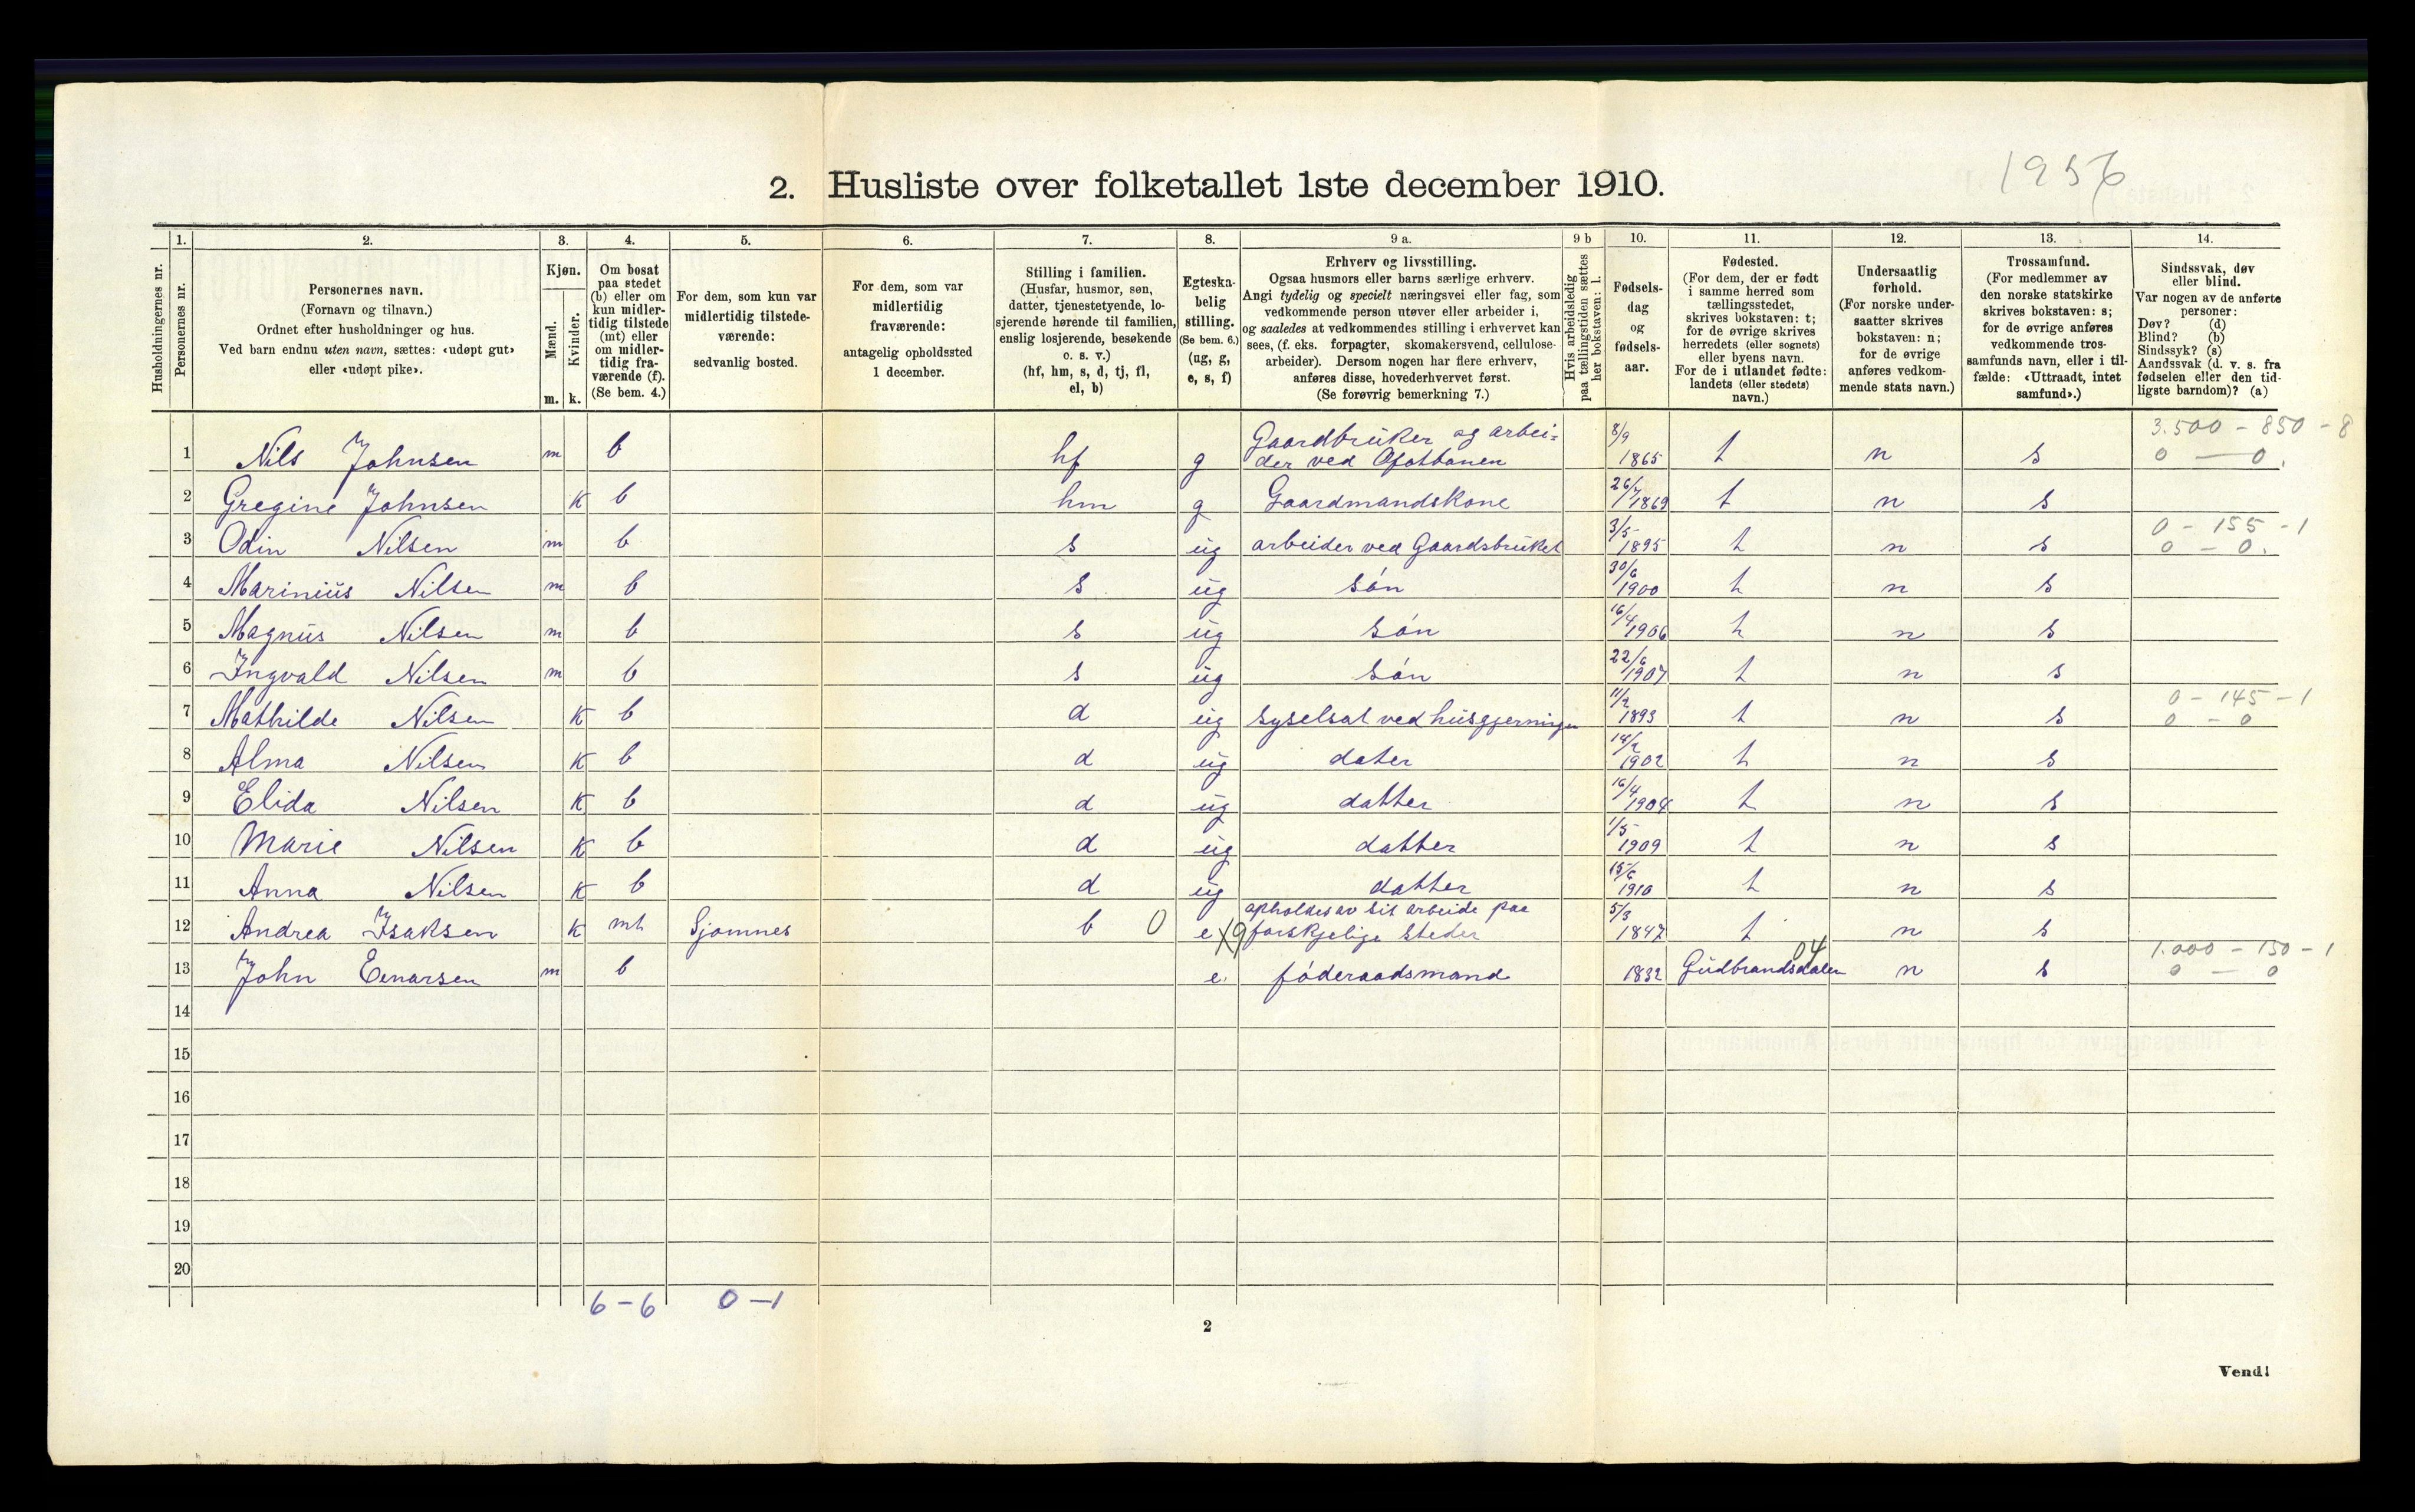 1956
2. Husliste over folketallet 1ste december 1910.
Husholdningernes nr.
1. Personernes nr.
2. Personernes navn.
(Fornavn og tilnavn.)
Ordnet efter husholdninger og hus.
Ved barn endnu uten navn, sættes: «udøpt gut»
eller «udøpt pike».
3. Kjøn.
Mænd. m.
Kvinder. k.
4. Om bosat
paa stedet
(b) eller om
kun midler-
tidig tilstede
(mt) eller
om midler-
tidig fra-
værende (f).
(Se bem. 4.)
5. For dem, som kun var
midlertidig tilstede-
værende:
sedvanlig bosted.
6. For dem, som var
midlertidig
fraværende:
antagelig opholdssted
1 december.
7. Stilling i familien.
(Husfar, husmor, søn,
datter, tjenestetyende, lo-
sjerende hørende til familien,
enslig losjerende, besøkende
o. s. v.)
(hf, hm, s, d, tj, fl,
el, b)
8. Egteska-
belig
stilling.
(Se bem. 6.)
(ug, g,
e, s, f)
9 a. Erhverv og livsstilling.
Ogsaa husmors eller barns særlige erhverv.
Angi tydelig og specielt næringsvei eller fag, som
vedkommende person utøver eller arbeider i,
og saaledes at vedkommendes stilling i erhvervet kan
sees, (f. eks. forpagter, skomakersvend, cellulose-
arbeider). Dersom nogen har flere erhverv,
anføres disse, hovederhvervet først.
(Se forøvrig bemerkning 7.)
9 b Hvis arbeidsledig
paa tællingstiden sættes
her bokstaven: l.
10. Fødsels-
dag
og
fødsels-
aar.
11. Fødested.
(For dem, der er født
i samme herred som
tællingsstedet,
skrives bokstaven: t;
for de øvrige skrives
herredets (eller sognets)
eller byens navn.
For de i utlandet fødte:
landets (eller stedets)
navn.)
12. Undersaatlig
forhold.
(For norske under-
saatter skrives
bokstaven: n;
for de øvrige
anføres vedkom-
mende stats navn.)
13. Trossamfund.
(For medlemmer av
den norske statskirke
skrives bokstaven: s;
for de øvrige anføres
vedkommende tros-
samfunds navn, eller i til-
fælde: «Uttraadt, intet
samfund».)
14. Sindssvak, døv
eller blind.
Var nogen av de anførte
personer:
Døv? (d)
Blind? (b)
Sindssyk? (s)
Aandssvak (d. v. s. fra
fødselen eller den tid-
ligste barndom)? (a)
1 Nils Johnsen m b hf g Gaardbruker og arbei-
der ved Ofotbanen 8/9 1865 t n s 3.500 - 850 - 8
0 - 0.
2 Gregine Johnsen K b hm g Gaardmandskone 26/7 1869 t n s
3 Odin Nilsen m b s ug arbeider ved Gaardsbruket 3/5 1895 t n s 0 - 155 - 1
0 - 0.
4 Marinius Nilsen m b s ug søn 30/6 1900 t n s
5 Magnus Nilsen m b s ug søn 16/4 1906 t n s
6 Ingvald Nilsen m b s ug søn 22/6 1907 t n s
7 Mathilde Nilsen K b d ug syselsat ved husgjerninger 11/2 1893 t n s 0 - 145 - 1
0 - 0
8 Alma Nilsen K b d ug dater 14/2 1902 t n s
9 Elida Nilsen K b d ug datter 16/4 1904 t n s
10 Marie Nilsen K b d ug datter 1/5 1909 t n s
11 Anna Nilsen K b d ug datter 15/6 1910 t n s
12 Andrea Isaksen K mt Sjomnes b 0 e X9 opholdes av sit arbeide paa
forskjelige steder 5/3 1847 t n s
13 John Einarsen m b e. føderaadsmand 1832 Gudbrandsdalen 04 n s 1.000 - 150 - 1
0 - 0
14
15
16
17
18
19
20
6 - 6 0 - 1
2
Vend!